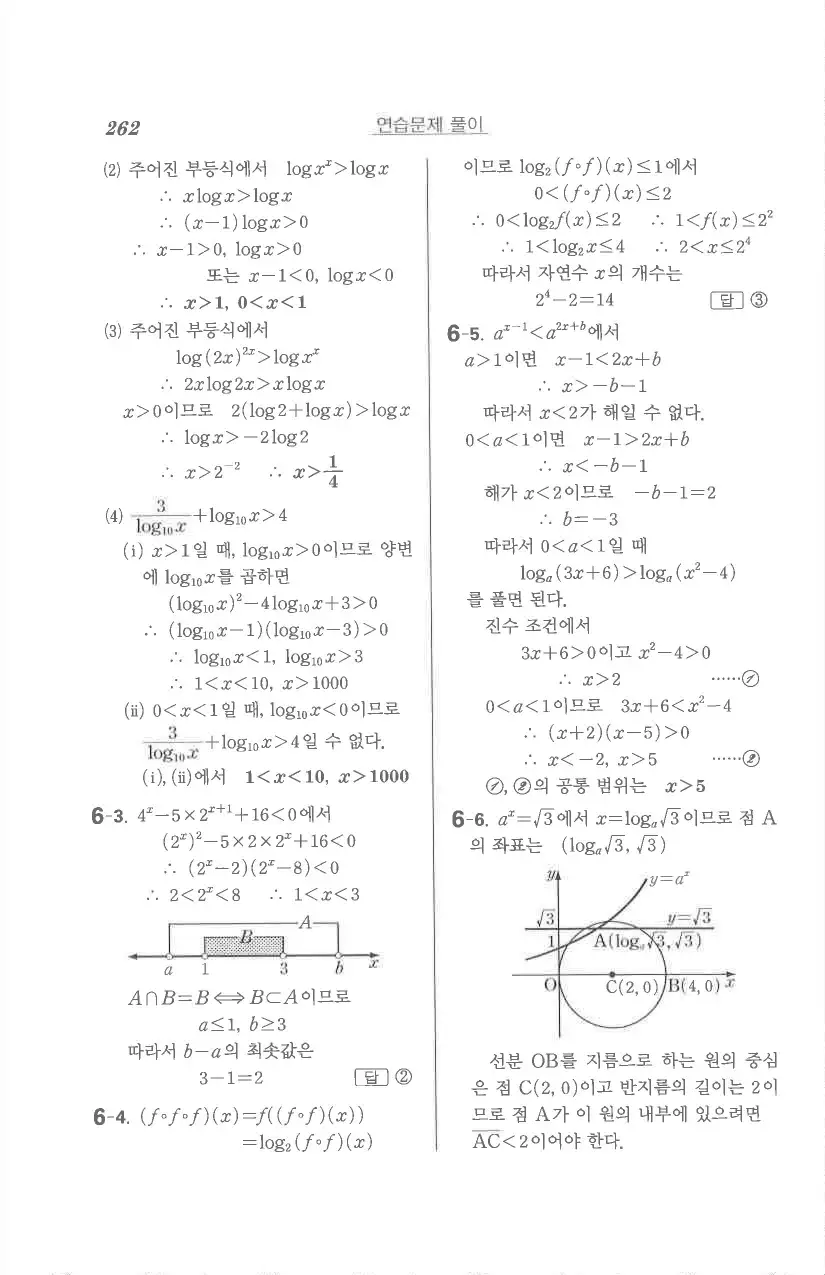 262
연습문제 풀이
(2) 주어진 부등식에서 log xˣ>log x
∴ xlog x>log x
∴ (x−1)log x>0
∴ x−1>0, log x>0
또는 x−1<0, log x<0
∴ x>1, 0<x<1
(3) 주어진 부등식에서
log(2x)²ˣ>log xˣ
∴ 2xlog 2x>xlog x
x>0이므로 2(log 2+log x)>log x
∴ log x>−2log 2
∴ x>2⁻² ∴ x>1/4
(4) 3/log₁₀x+log₁₀x>4
(i) x>1일 때, log₁₀x>0이므로 양변
에 log₁₀x를 곱하면
(log₁₀x)²−4log₁₀x+3>0
∴ (log₁₀x−1)(log₁₀x−3)>0
∴ log₁₀x<1, log₁₀x>3
∴ 1<x<10, x>1000
(ii) 0<x<1일 때, log₁₀x<0이므로
3/log₁₀x+log₁₀x>4일 수 없다.
(i), (ii)에서 1<x<10, x>1000
6-3. 4ˣ−5×2ˣ⁺¹+16<0에서
(2ˣ)²−5×2×2ˣ+16<0
∴ (2ˣ−2)(2ˣ−8)<0
∴ 2<2ˣ<8 ∴ 1<x<3
A
B
a 1 3 b x
A∩B=B⟺B⊂A이므로
a≤1, b≥3
따라서 b−a의 최솟값은
3−1=2 답 ②
6-4. (f∘f∘f)(x)=f((f∘f)(x))
=log₂(f∘f)(x)
이므로 log₂(f∘f)(x)≤1에서
0<(f∘f)(x)≤2
∴ 0<log₂f(x)≤2 ∴ 1<f(x)≤2²
∴ 1<log₂x≤4 ∴ 2<x≤2⁴
따라서 자연수 x의 개수는
2⁴−2=14 답 ③
6-5. aˣ⁻¹<a²ˣ⁺ᵇ에서
a>1이면 x−1<2x+b
∴ x>−b−1
따라서 x<2가 해일 수 없다.
0<a<1이면 x−1>2x+b
∴ x<−b−1
해가 x<2이므로 −b−1=2
∴ b=−3
따라서 0<a<1일 때
logₐ(3x+6)>logₐ(x²−4)
를 풀면 된다.
진수 조건에서
3x+6>0이고 x²−4>0
∴ x>2 ……①
0<a<1이므로 3x+6<x²−4
∴ (x+2)(x−5)>0
∴ x<−2, x>5 ……②
①, ②의 공통 범위는 x>5
6-6. aˣ=√3에서 x=logₐ√3이므로 점 A
의 좌표는 (logₐ√3, √3)
y y=aˣ
√3 y=√3
1 A(logₐ√3, √3)
O C(2, 0) B(4, 0) x
선분 OB를 지름으로 하는 원의 중심
은 점 C(2, 0)이고 반지름의 길이는 2이
므로 점 A가 이 원의 내부에 있으려면
A̅C̅<2이어야 한다.